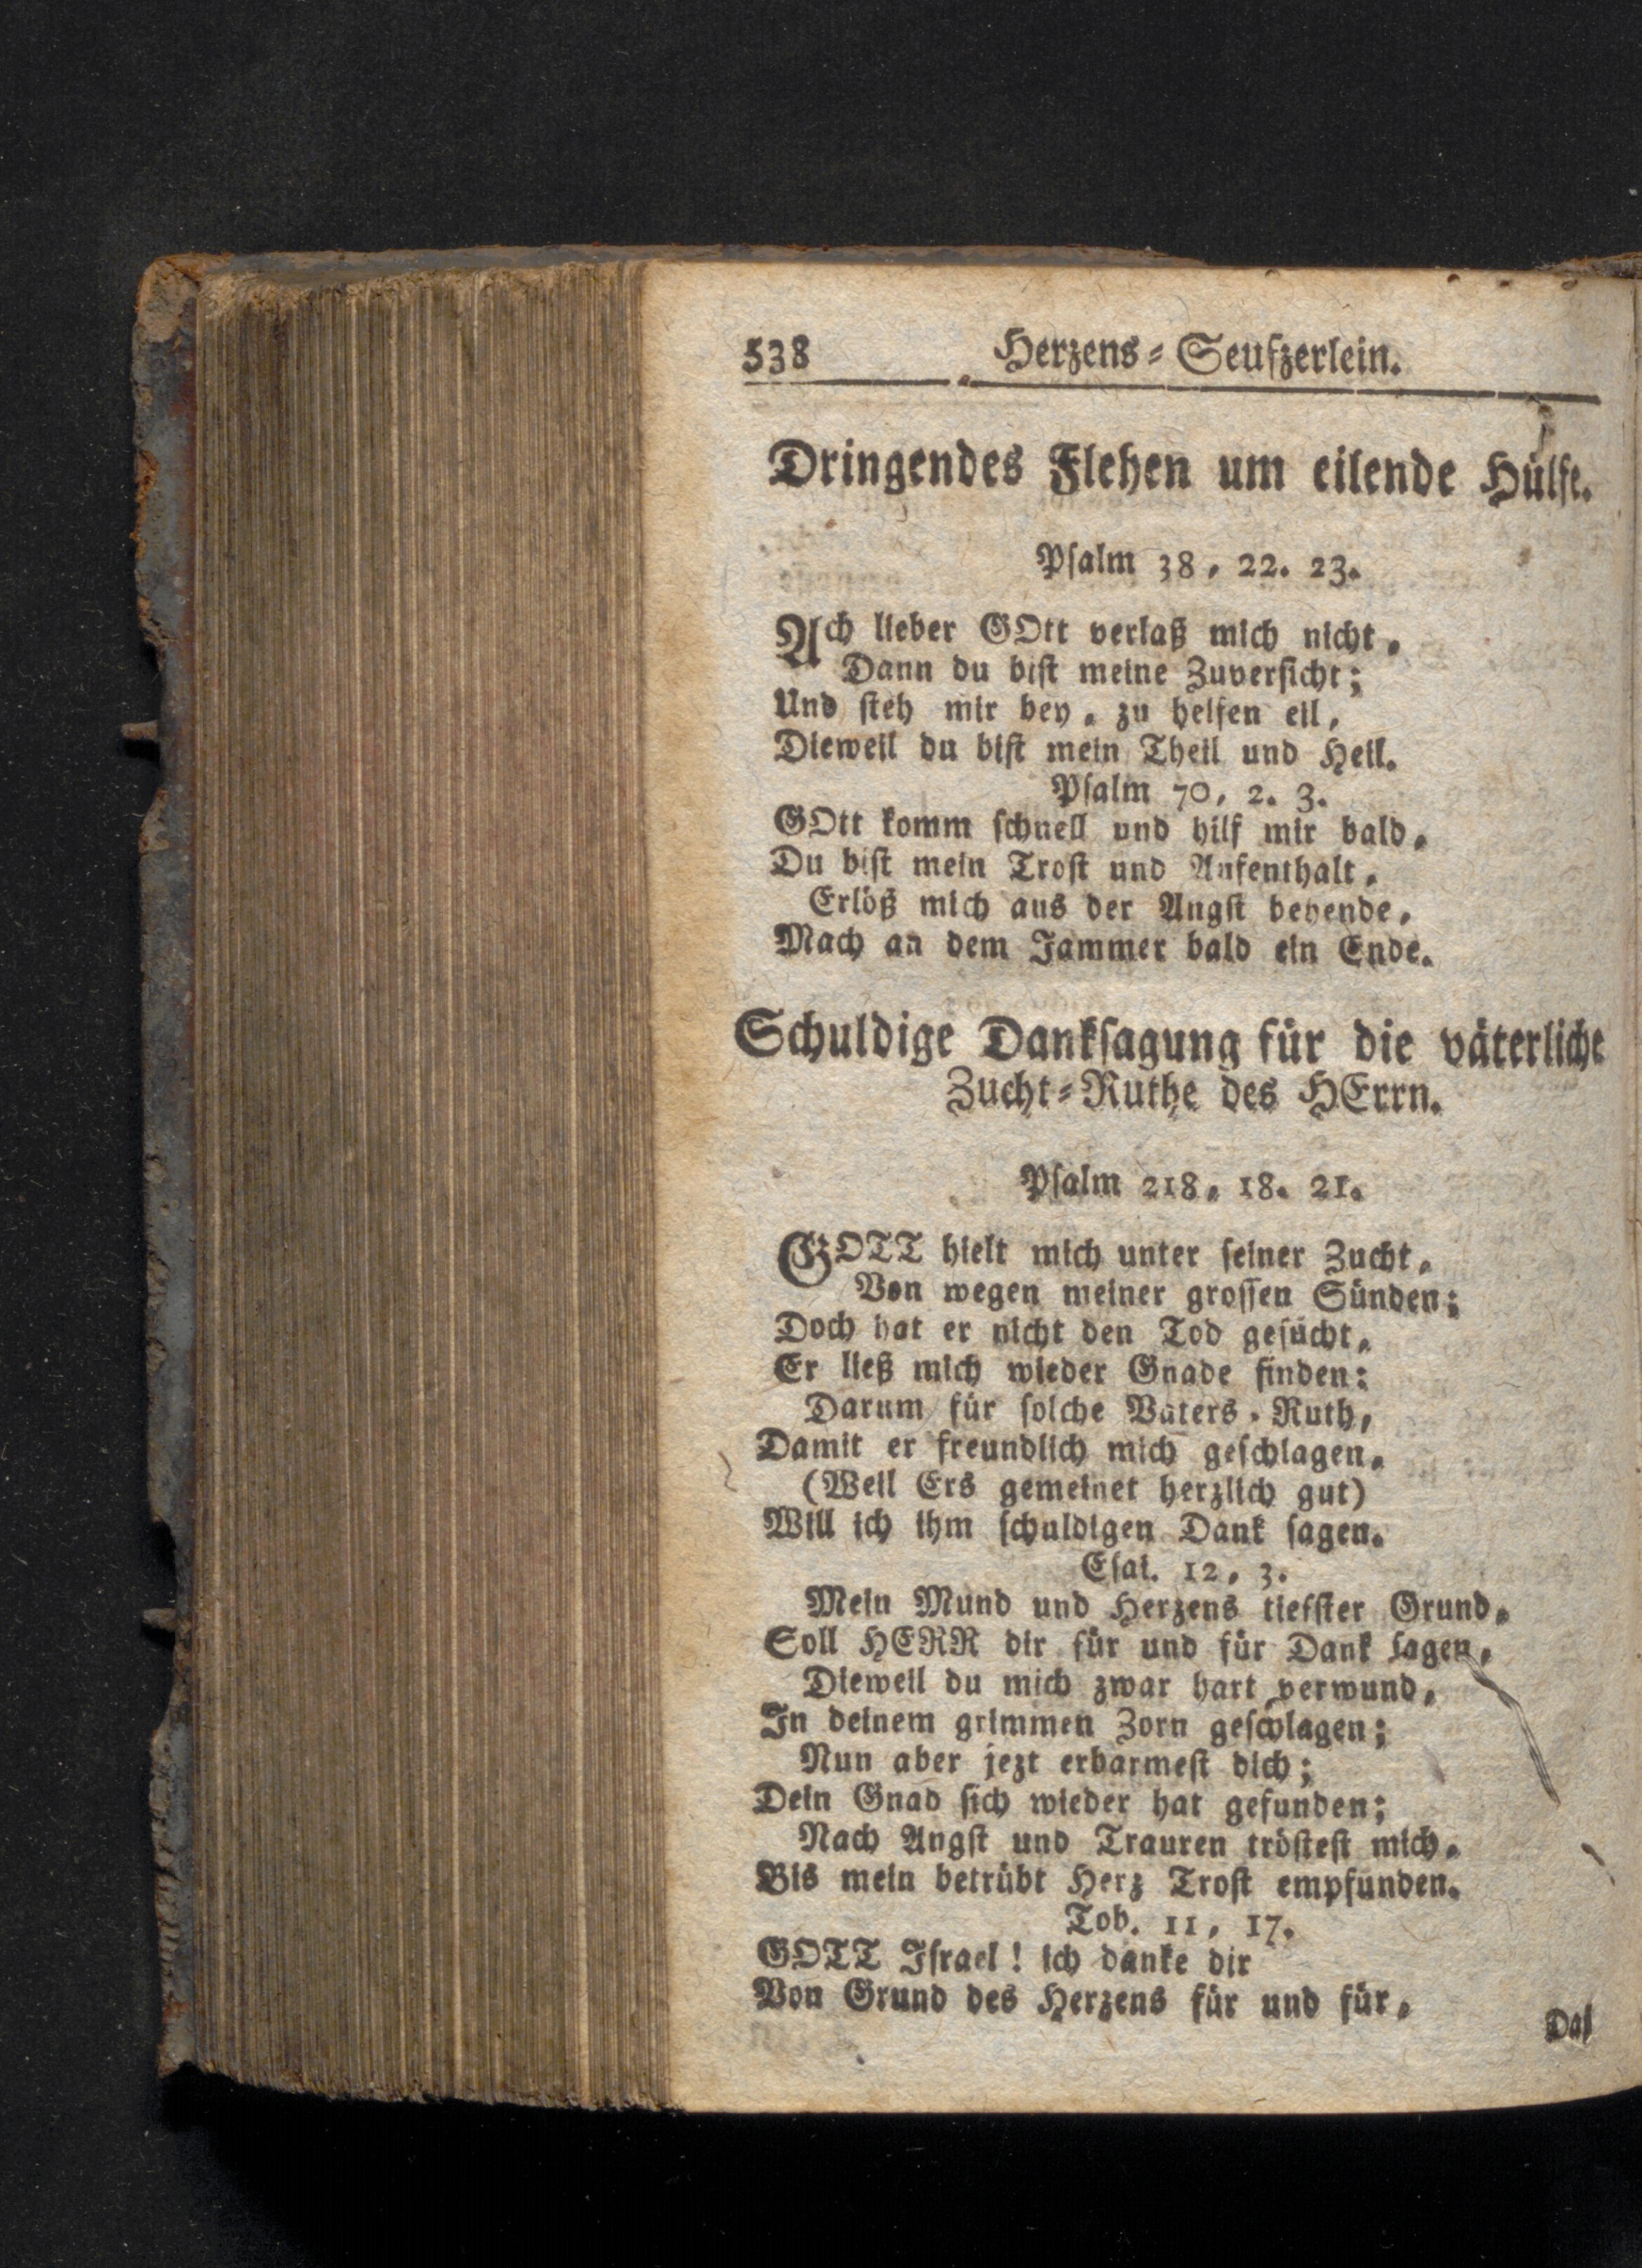 538 Herzens-Seufzerlein.
Dringendes Flehen um eilende Hülfe.
Psalm 38, 22. 23.
Ach lieber GOtt verlaß mich nicht,
Dann du bist meine Zuversicht;
Und steh mir bey, zu helfen eil,
Dieweil du bist mein Theil und Heil.
Psalm 70, 2. 3.
GOtt komm schnell und hilf mir bald,
Du bist mein Trost und Aufenthalt,
Erlöß mich aus der Angst behende,
Mach an dem Jammer bald ein Ende.
Schuldige Danksagung für die väterliche
Zucht-Ruthe des HErrn.
Psalm 218, 18. 21.
GOTT hielt mich unter seiner Zucht,
Von wegen meiner grossen Sünden;
Doch hat er nicht den Tod gesucht,
Er ließ mich wieder Gnade finden:
Darum für solche Vaters-Ruth,
Damit er freundlich mich geschlagen,
(Weil Ers gemeinet herzlich gut)
Will ich ihm schuldigen Dank sagen.
Esai. 12, 3.
Mein Mund und Herzens tiefster Grund,
Soll HERR dir für und für Dank sagen,
Dieweil du mich zwar hart verwund,
In deinem grimmen Zorn geschlagen;
Nun aber jezt erbarmest dich;
Dein Gnad sich wieder hat gefunden;
Nach Angst und Trauren tröstest mich,
Bis mein betrübt Herz Trost empfunden.
Tob. 11, 17.
GOTT Israel! ich danke dir
Von Grund des Herzens für und für,
Daß